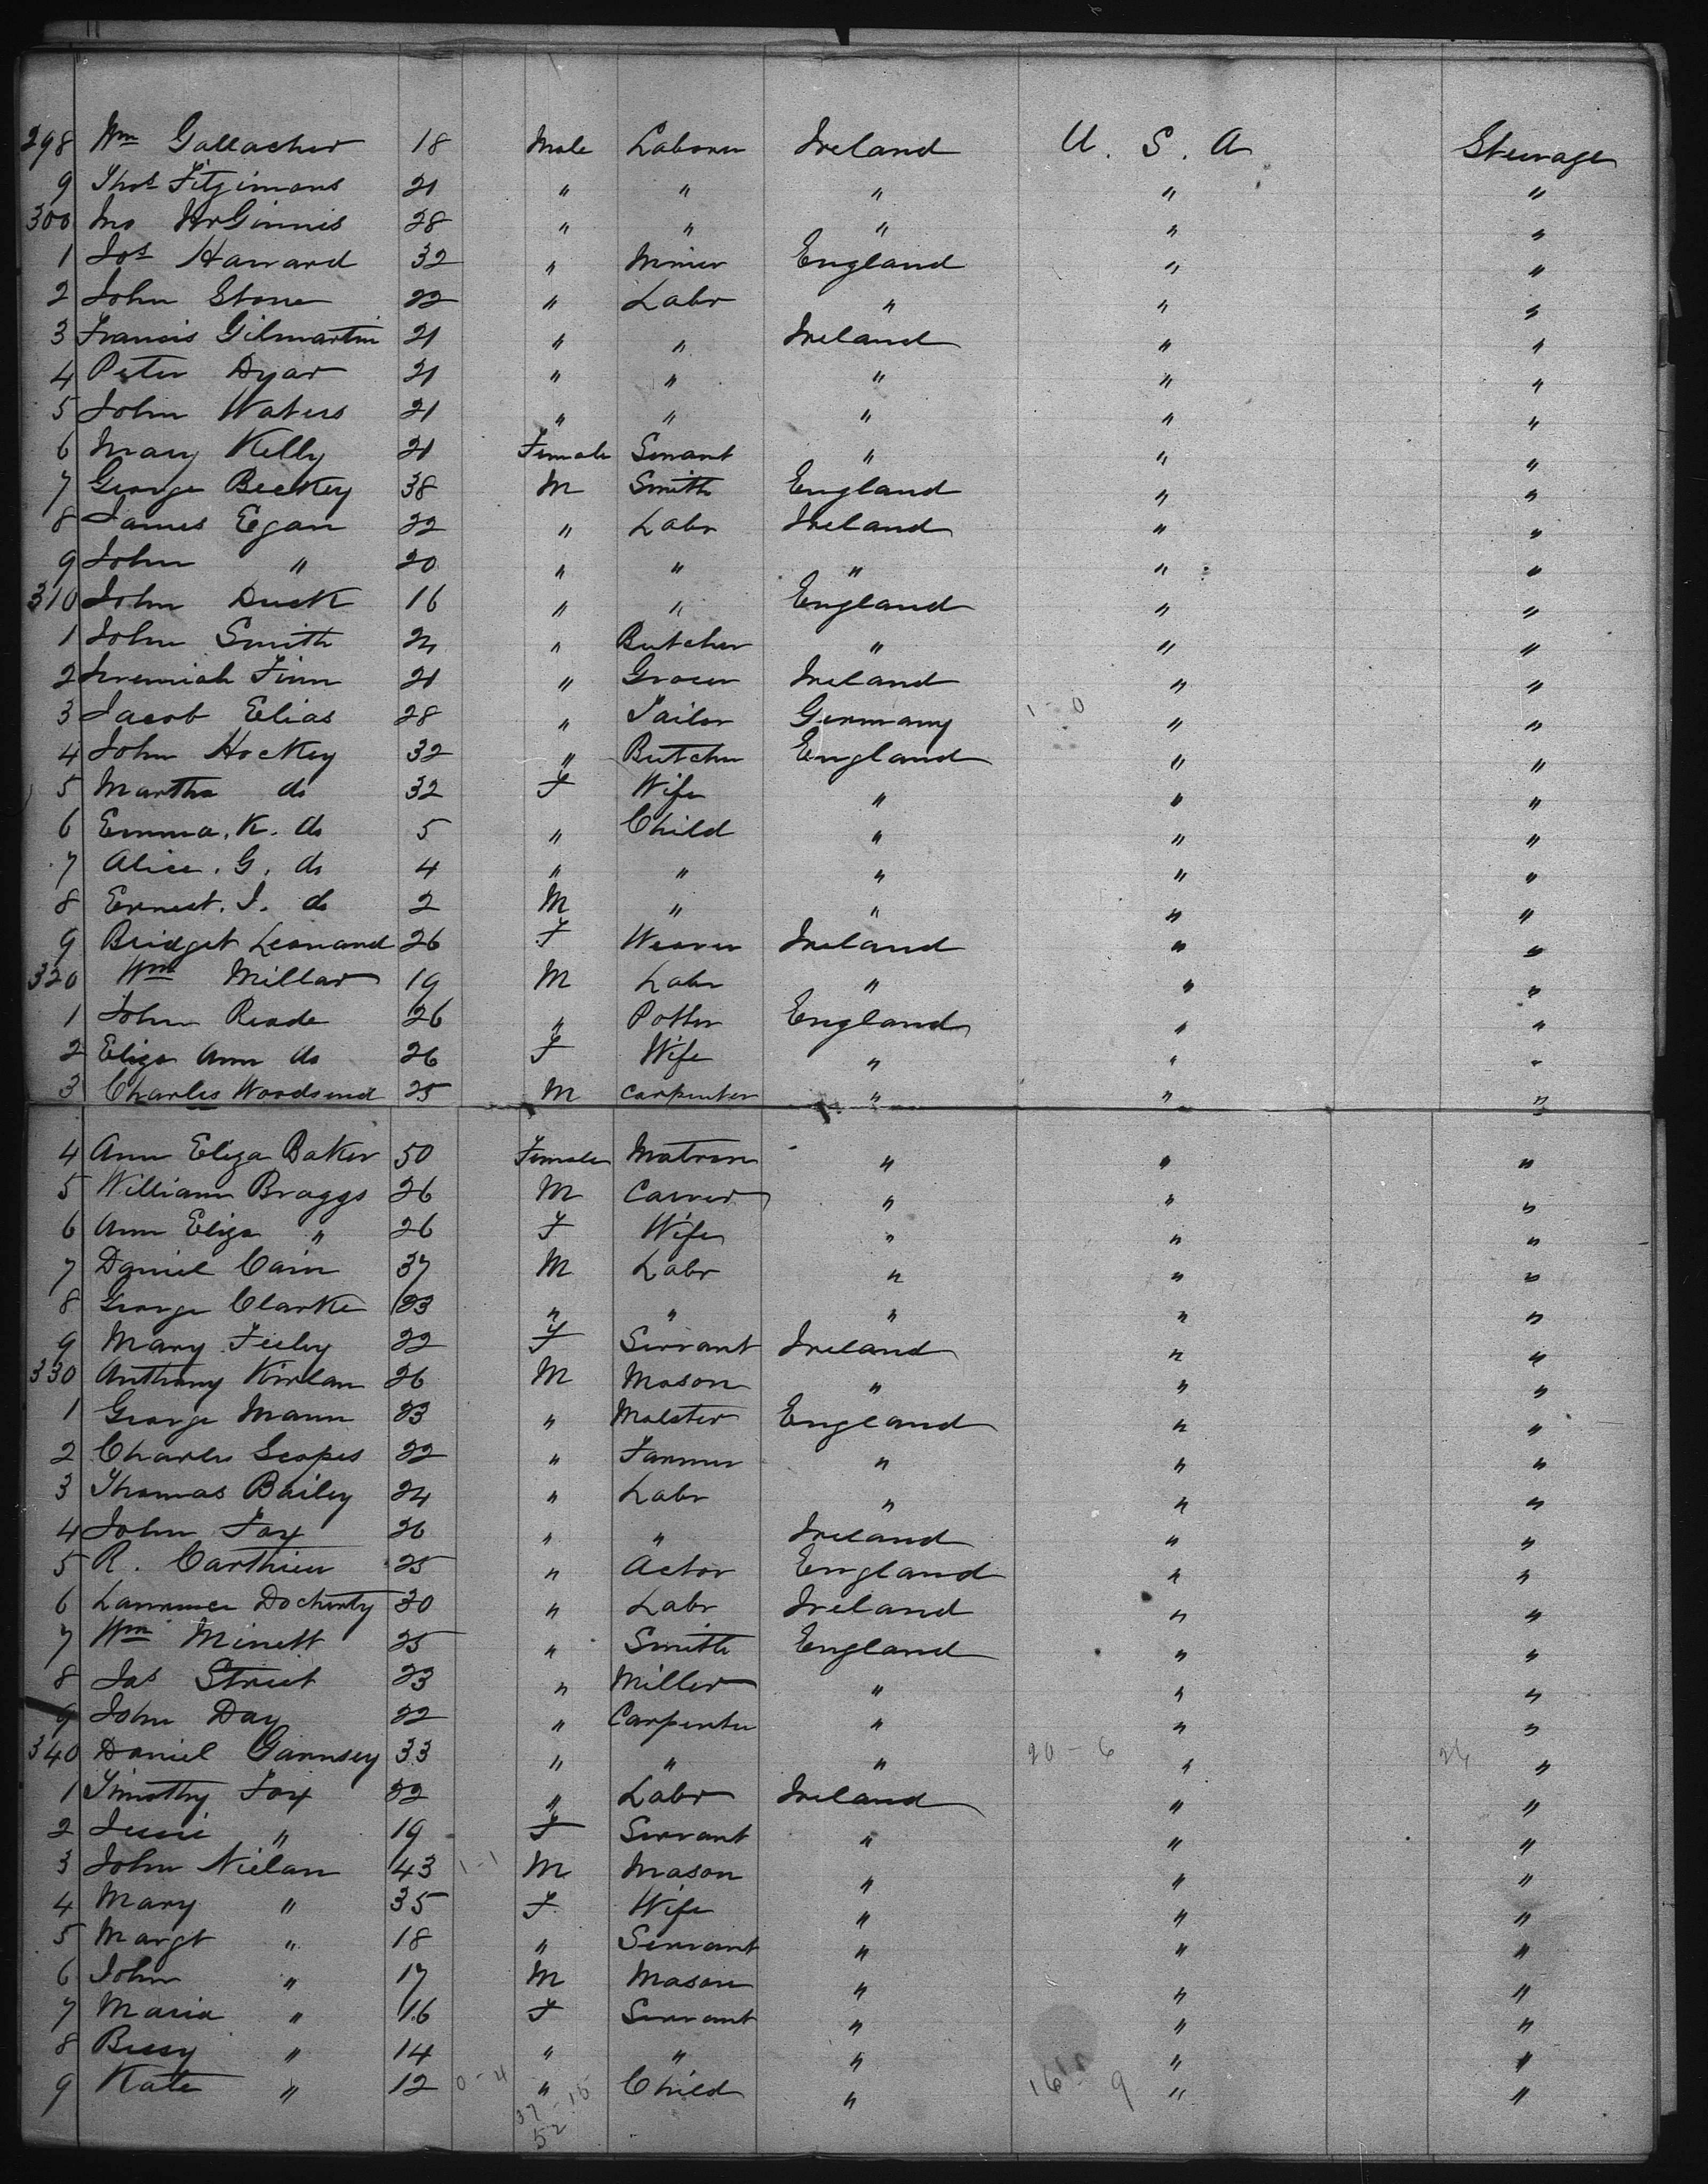 298 Wm Gallacher 18 Male Laborer Ireland U. S. A Steerage
9 Thos Fitzimons 21 " " " " "
300 Jno McGinnis 28 " " " " "
1 Jos Harvard 32 " Miner England " "
2 John Stone 22 " Labr " " "
3 Francis Gilmartin 21 " " Ireland " "
4 Peter Dyar 21 " " " " "
5 John Waters 21 " " " " "
6 Mary Kelly 21 Female Servant " " "
7 George Beckey 38 M Smith England " "
8 James Egan 22 " Labr Ireland " "
9 John " 20 " " " " "
310 John Duck 16 " " England " "
1 John Smith " Butcher " " "
2 Jeremiah Finn 21 " Grocer Ireland " "
3 Jacob Elias 28 " Tailor Germany 1 - 0 " "
4 John Hockey 32 " Butcher England " "
5 Martha do 32 F Wife " " "
6 Emma. K. do 5 " Child " " "
7 Alice. G. do 4 " " " " "
8 Ernest. J. do 2 M " " " "
9 Bridget Leonard 26 F Weaver Ireland " "
320 Wm Millar 19 M Labr " " "
1 John Reade 26 " Potter England " "
2 Eliza Ann do 26 F Wife " " "
3 Charles Woodsend 25 M Carpenter " " "
4 Ann Eliza Baker 50 Female Matron " " "
5 William Braggs 26 M Carver " " "
6 Ann Eliza " 26 F Wife " " "
7 Daniel Cain 37 M Labr " " "
8 George Clarke 23 " " " " "
9 Mary Feeley 22 F Servant Ireland " "
330 Anthony Kirlan 26 M Mason " " "
1 George Mann 23 " Malster England " "
2 Charles Scopes 22 " Farmer " " "
3 Thomas Bailey 24 " Labr " " "
4 John Fox 26 " " Ireland " "
5 R. Carthieu 25 " Actor England " "
6 Lawrence Docherty 30 " Labr Ireland " "
7 Wm Minett 25 " Smith England " "
8 Jas Street 23 " Miller " " "
9 John Day 22 " Carpenter " " "
340 Daniel Garnsey 33 " " " 20 - 6 " "
1 Timothy Fox 22 " Labr Ireland " "
2 " 19 F Servant " " "
3 John Nielan 43 1-1 M Mason " " "
4 Mary " 35 F Wife " " "
5 Margt " 18 " Servant " " "
6 John " 17 M Mason " " "
7 Maria " 16 F Servant " " "
8 Bessy " 14 " " " " "
9 Kate " 12 0-4 " Child " 16 9 " "
37 - 15
52